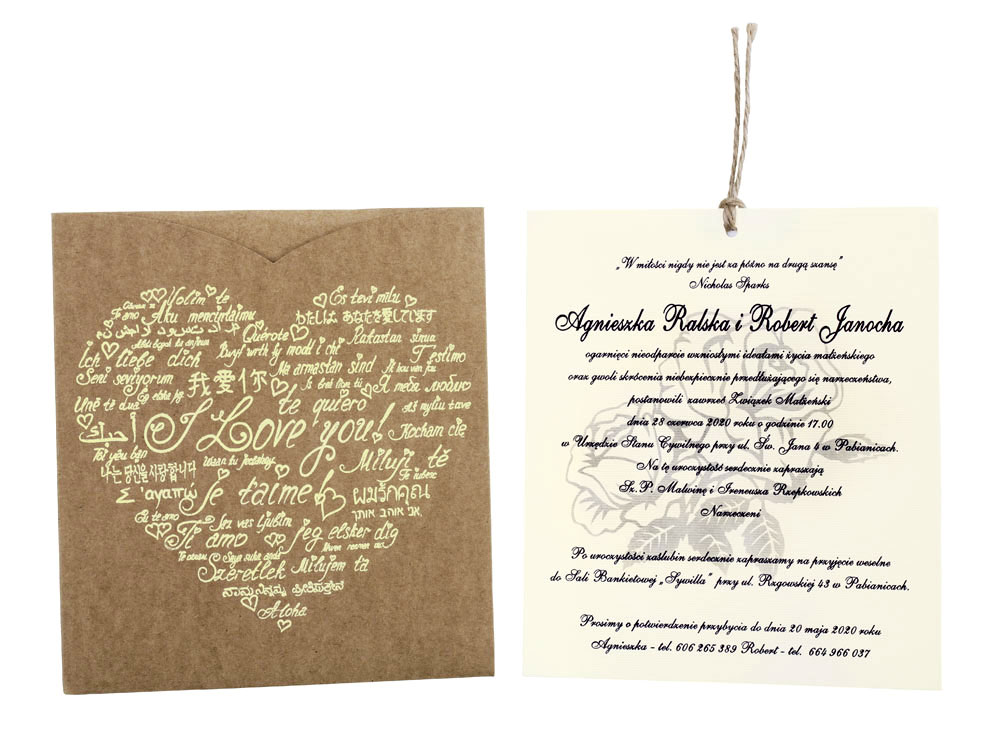 Volim te
Es tevi mīlu
Ti amo
Aku mencintaimu
わたしは あなたを愛しています
Quierote
Rakastan sinua
Ich liebe dich
Testimo
Ma armastan sind
Seni seviyorum
我爱你
Я тебя люблю
Unë të dua
te quiero
Aš myliu tave
أحبك
I Love you!
Kocham cię
Toi yêu ban
나는 당신을 사랑합니다
Miluji tě
Te iubesc
Σ'αγαπώ
Je t'aime!
ผมรักคุณ
אני אוהב אותך
Eu te amo
Ti amo
Sez vers ljubim
Jeg elsker dig
Szeretlek
Milujem ťa
Aloha
„W miłości nigdy nie jest za późno na drugą szansę”
Nicholas Sparks
Agnieszka Ralska i Robert Janocha
ogarnięci nieodparcie wzniosłymi ideałami życia małżeńskiego
oraz gwoli skrócenia niebezpiecznie przedłużającego się narzeczeństwa,
postanowili zawrzeć Związek Małżeński
dnia 28 czerwca 2020 roku o godzinie 17.00
w Urzędzie Stanu Cywilnego przy ul. Św. Jana 4 w Pabianicach.
Na tę uroczystość serdecznie zapraszają
Sz. P. Malwinę i Ireneusza Rzepkowskich
Narzeczeni
Po uroczystości zaślubin serdecznie zapraszamy na przyjęcie weselne
do Sali Bankietowej „Sywilla” przy ul. Rzgowskiej 43 w Pabianicach.
Prosimy o potwierdzenie przybycia do dnia 20 maja 2020 roku
Agnieszka - tel. 606 265 389 Robert - tel. 664 966 037